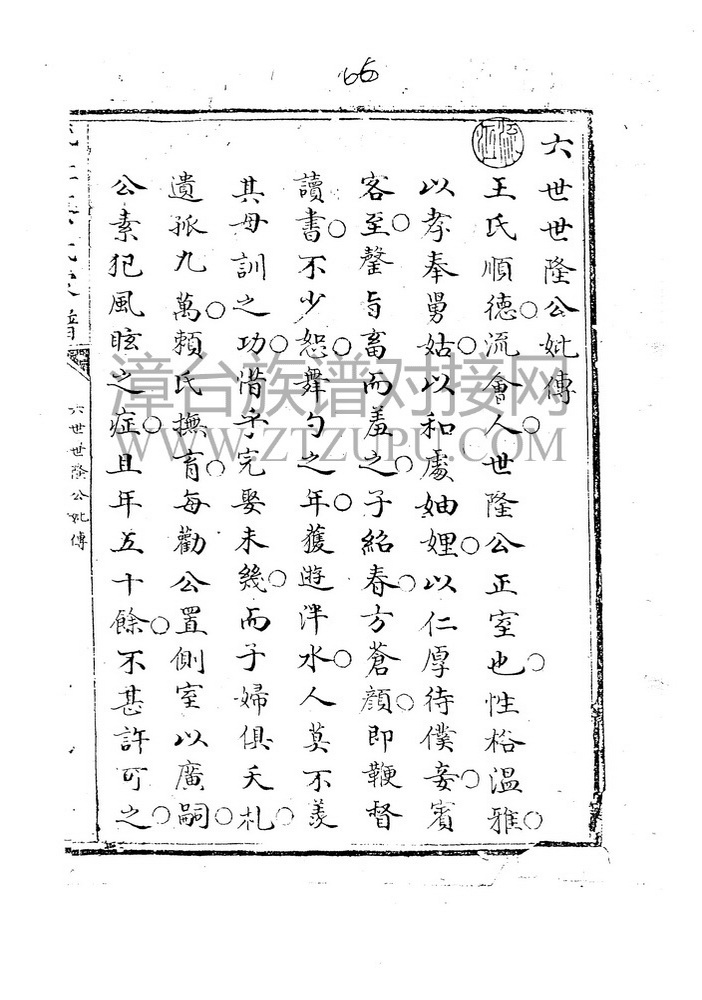 66
六世世隆公妣傳
王氏順德○流會人世隆公正室也○性格溫雅○
以孝奉舅姑○以和處妯娌○以仁厚待僕妾○賓
客至○罄旨畜而羞之○子紹春○方蒼顔○即鞭督
讀書○不少恕○舞勺之年○獲遊泮水○人莫不羨
其母訓之功○惜乎完娶未幾○而子婦俱夭札○
遺孤九萬○賴氏撫育○每勸公置側室以廣嗣○
公素犯風眩之症○且年五十餘○不甚許可之○
六世世隆公妣傳
漳台族谱对接网
WWW.ZTZUPU.COM